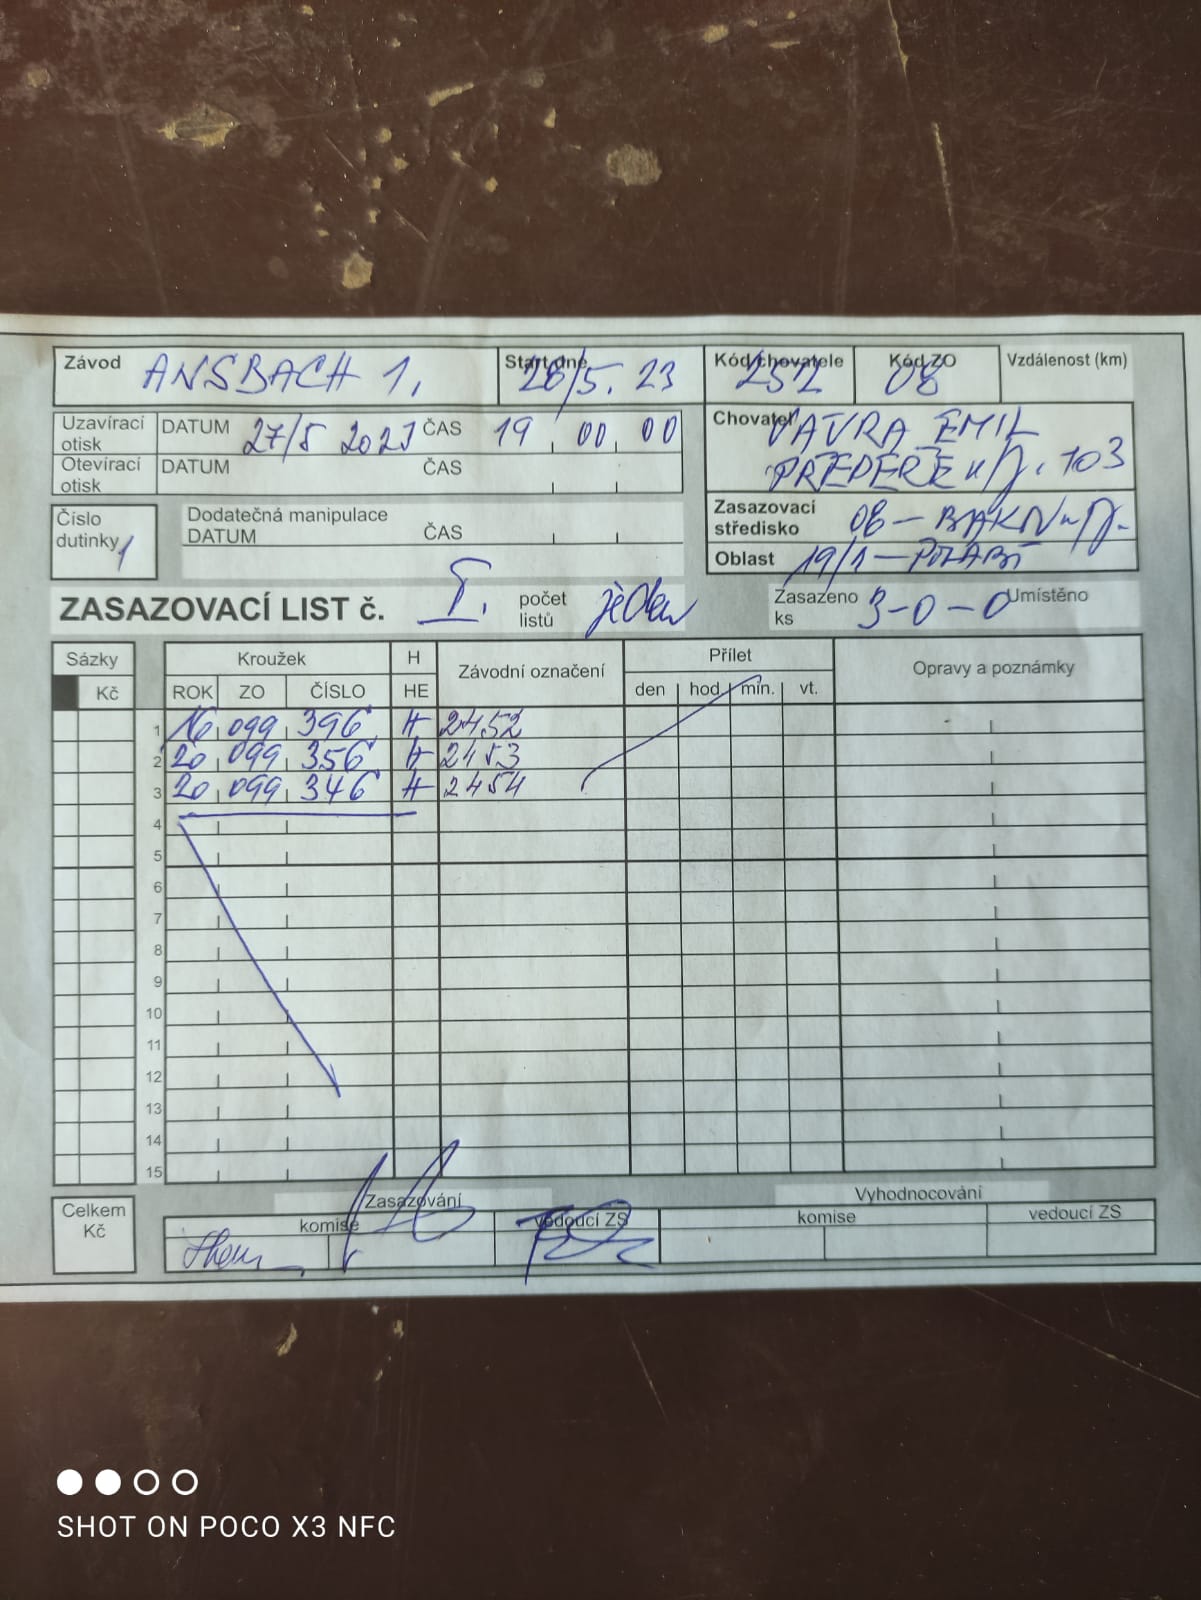 Závod ANSBACH 1. Start dne 28/5. 23 Kód chovatele 252 Kód ZO 08 Vzdálenost (km)
Uzavírací otisk DATUM 27/5 2023 ČAS 19 00 00
Otevírací otisk DATUM ČAS
Chovatel VÁVRA EMIL
PŘEPEŘE n/J. 103
Číslo dutinky 1
Dodatečná manipulace
DATUM ČAS
Zasazovací středisko 08 - BAKOV n/J.
Oblast 19/1 - POLABÍ
ZASAZOVACÍ LIST č. I. počet listů jeden Zasazeno ks 3-0-0 Umístěno
Sázky Kroužek H Závodní označení Přílet Opravy a poznámky
Kč ROK ZO ČÍSLO HE den hod. min. vt.
1 16 099 396 H 2452
2 20 099 356 H 2453
3 20 099 346 H 2454
4
5
6
7
8
9
10
11
12
13
14
15
Celkem Kč
Zasazování Vyhodnocování
komise vedoucí ZS komise vedoucí ZS
SHOT ON POCO X3 NFC